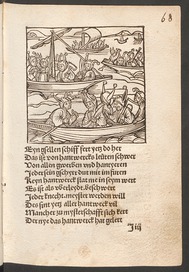 68
Eyn gsellen schiff fert yetz do her
Das ist von hantwercks leüten schwer
Von allen gwerben vnd hantyeren
Jeder sein gschyrr dut mit im füren
Keyn hantwerck stat me in seym wert
Es ist als vberleydt / beschwert
Jeder knecht / meyster werden will
Des sint yetz aller hantwerck vil
Mancher zů meysterschafft sich kert
Der nye das hantwerck hat gelert